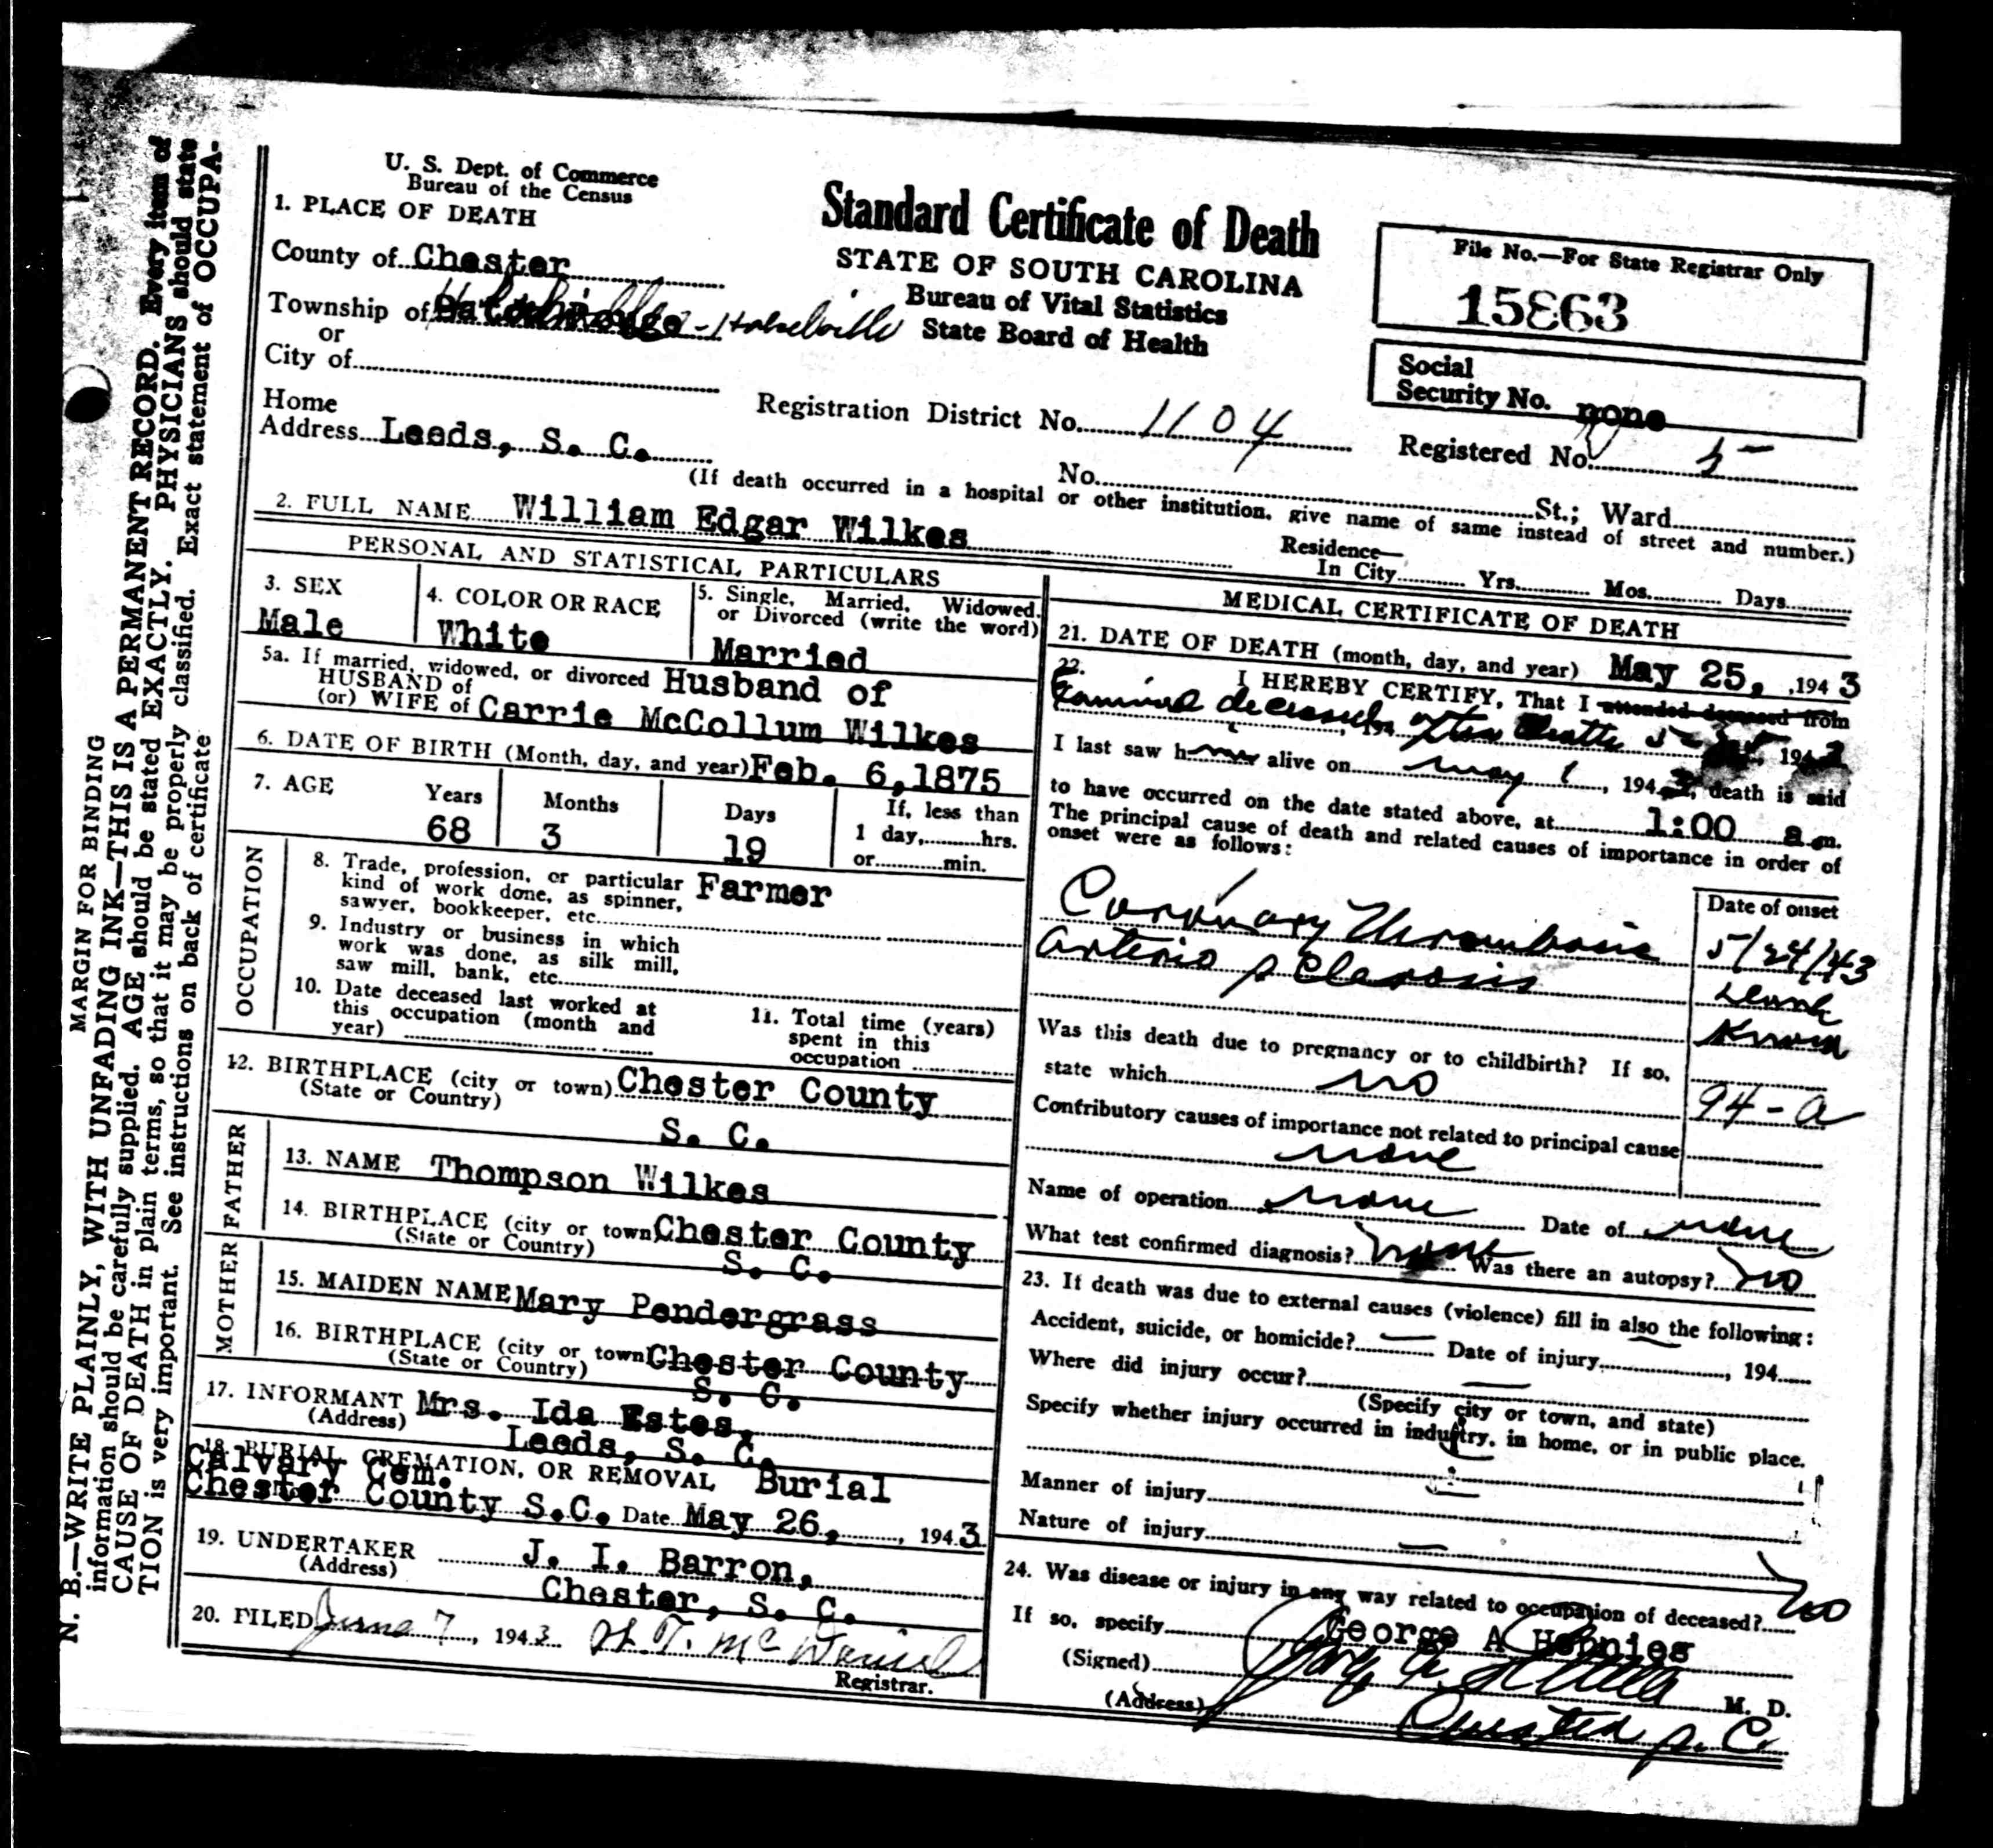 U. S. Dept. of Commerce
Bureau of the Census
1. PLACE OF DEATH
County of Chester
Township of - Halselville
or
City of
Home
Address Leeds, S. C.
Standard Certificate of Death
STATE OF SOUTH CAROLINA
Bureau of Vital Statistics
State Board of Health
File No.—For State Registrar Only
15863
Social
Security No. none
Registration District No. 1104
Registered No. 5
No. St.; Ward
(If death occurred in a hospital or other institution, give name of same instead of street and number.)
2. FULL NAME William Edgar Wilkes
Residence—
In City Yrs. Mos. Days
PERSONAL AND STATISTICAL PARTICULARS
3. SEX
Male
4. COLOR OR RACE
White
5. Single, Married, Widowed,
or Divorced (write the word)
Married
5a. If married, widowed, or divorced Husband of
HUSBAND of
(or) WIFE of Carrie McCollum Wilkes
6. DATE OF BIRTH (Month, day, and year) Feb. 6,1875
7. AGE
Years
68
Months
3
Days
19
If, less than
1 day, hrs.
or min.
OCCUPATION
8. Trade, profession, or particular Farmer
kind of work done, as spinner,
sawyer, bookkeeper, etc.
9. Industry or business in which
work was done, as silk mill,
saw mill, bank, etc.
10. Date deceased last worked at
this occupation (month and
year)
11. Total time (years)
spent in this
occupation
12. BIRTHPLACE (city or town) Chester County
(State or Country)
S. C.
FATHER
13. NAME Thompson Wilkes
14. BIRTHPLACE (city or town Chester County
(State or Country) S. C.
MOTHER
15. MAIDEN NAME Mary Pendergrass
16. BIRTHPLACE (city or town Chester County
(State or Country) S. C.
17. INFORMANT Mrs. Ida Estes,
(Address) Leeds, S. C.
18. BURIAL, CREMATION, OR REMOVAL Burial
Calvary Cem.
Chester County S.C. Date May 26, , 1943
19. UNDERTAKER J. I. Barron,
(Address) Chester, S. C.
20. FILED June 7, 1943. McDaniel
Registrar.
MEDICAL CERTIFICATE OF DEATH
21. DATE OF DEATH (month, day, and year) May 25, ,1943
22. I HEREBY CERTIFY, That I attended deceased from
Examined deceased , 194 after death 5- , 1943
I last saw h alive on may 1 , 1943, death is said
to have occurred on the date stated above, at 1:00 a.m.
The principal cause of death and related causes of importance in order of
onset were as follows:
Date of onset
Coronary Thrombosis 5/24/43
Arterio sclerosis
known
Was this death due to pregnancy or to childbirth? If so,
state which no
94-a
Contributory causes of importance not related to principal cause
none
Name of operation none Date of none
What test confirmed diagnosis? none Was there an autopsy? no
23. If death was due to external causes (violence) fill in also the following:
Accident, suicide, or homicide? — Date of injury , 194
Where did injury occur? —
(Specify city or town, and state)
Specify whether injury occurred in industry, in home, or in public place.
Manner of injury
Nature of injury —
24. Was disease or injury in any way related to occupation of deceased? no
If so, specify
George A
(Signed) M. D.
(Address) Chester S. C.
MARGIN FOR BINDING
N. B.—WRITE PLAINLY, WITH UNFADING INK—THIS IS A PERMANENT RECORD. Every item of
information should be carefully supplied. AGE should be stated EXACTLY. PHYSICIANS should state
CAUSE OF DEATH in plain terms, so that it may be properly classified. Exact statement of OCCUPA-
TION is very important. See instructions on back of certificate